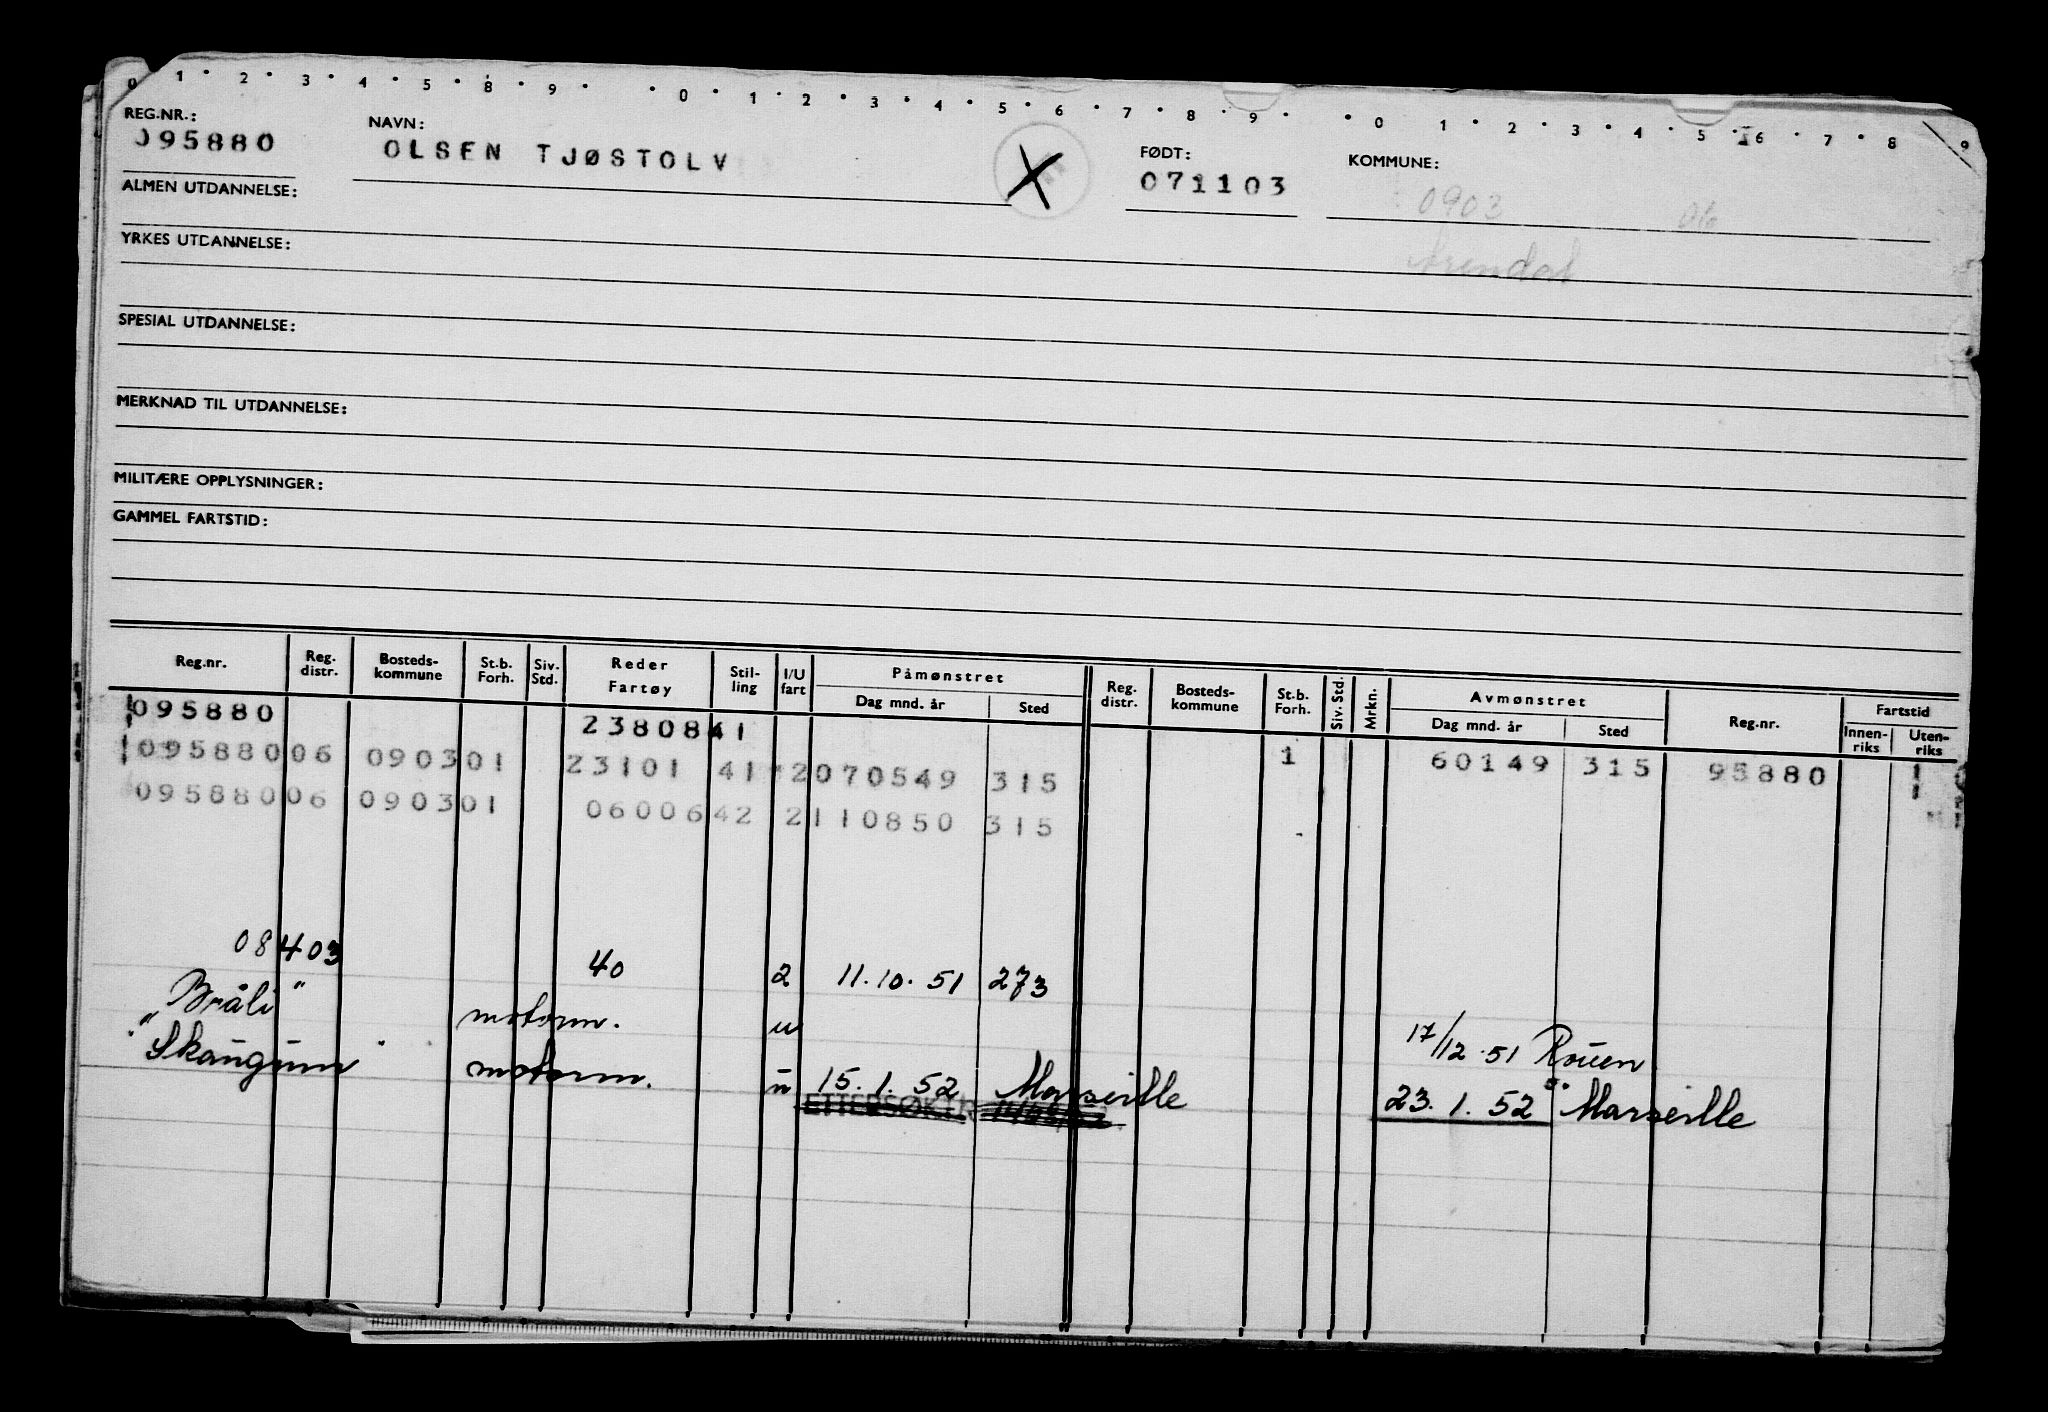 0 1 2 3 4 5 8 9 0 1 2 3 4 5 6 7 8 9 0 1 2 3 4 5 6 7 8 9
REG.NR.: NAVN: FØDT: KOMMUNE:
095880 OLSEN TJØSTOLV X 071103
0903 06
Arendal
ALMEN UTDANNELSE:
YRKES UTDANNELSE:
SPESIAL UTDANNELSE:
MERKNAD TIL UTDANNELSE:
MILITÆRE OPPLYSNINGER:
GAMMEL FARTSTID:
Reg.nr. Reg. distr. Bosteds- kommune St.b. Forh. Siv. Std. Reder Fartøy Stil- ling I/U fart Påmønstret Dag mnd. år Sted Reg. distr. Bosteds- kommune St.b. Forh. Siv. Std. Mrkn. Avmønstret Dag mnd. år Sted Reg.nr. Fartstid Innen- riks Uten- riks
095880 2380841
09588006 090301 23101 41 2070549 315 1 60149 315 95880
09588006 090301 0600642 2110850 315
08403 40 2 11.10.51 273
"Bråli" motorm. u 17/12.51 Rouen
"Skaugum" motorm. u 15.1.52 Marseille 23.1.52 Marseille
ETTERSØKT